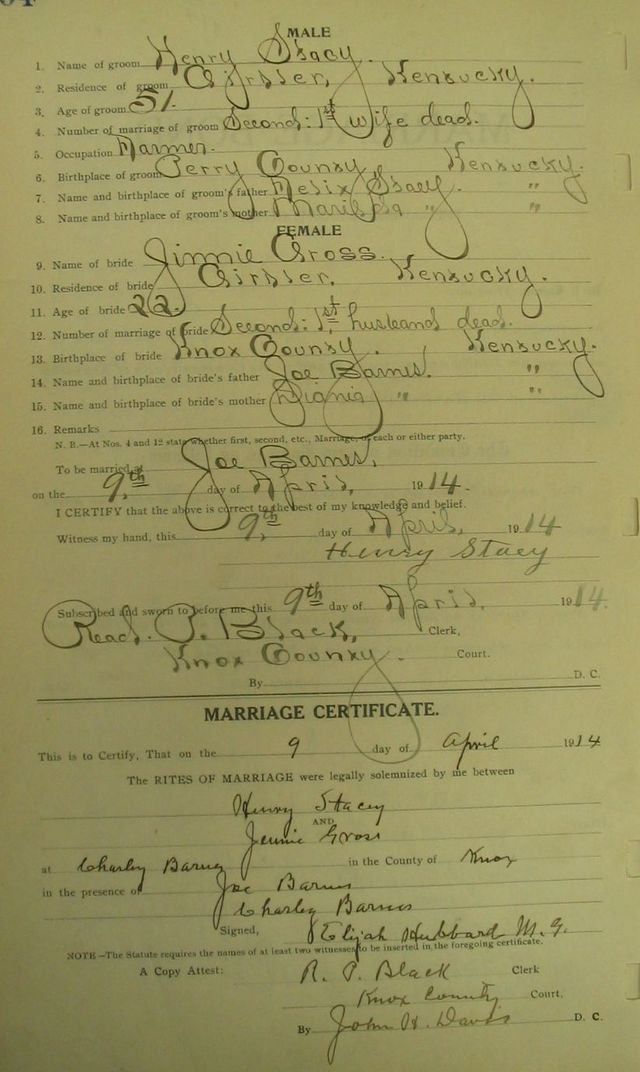 MALE
1. Name of groom Henry Stacy.
2. Residence of groom Girdler, Kentucky.
3. Age of groom 51.
4. Number of marriage of groom Second: 1st wife dead.
5. Occupation Farmer.
6. Birthplace of groom Perry County, Kentucky.
7. Name and birthplace of groom's father Felix Stacy. "
8. Name and birthplace of groom's mother " "
FEMALE
9. Name of bride Jinnie Gross.
10. Residence of bride Girdler, Kentucky.
11. Age of bride 22.
12. Number of marriage of bride Second: 1st husband dead.
13. Birthplace of bride Knox County. Kentucky.
14. Name and birthplace of bride's father Joe Barnes. "
15. Name and birthplace of bride's mother " "
16. Remarks
N. B.—At Nos. 4 and 12 state whether first, second, etc., Marriage, of each or either party.
To be married at Joe Barnes,
on the 9th day of April, 1914.
I CERTIFY that the above is correct to the best of my knowledge and belief.
Witness my hand, this 9th, day of April, 1914
Henry Stacy
Subscribed and sworn to before me this 9th day of April, 1914.
Read. P. Black, Clerk,
Knox County. Court.
By D. C.
MARRIAGE CERTIFICATE.
This is to Certify, That on the 9 day of April 1914
The RITES OF MARRIAGE were legally solemnized by me between
Henry Stacey
AND
Jennie Gross
at Charley Barnes in the County of Knox
in the presence of Joe Barnes
Charley Barnes
Signed, Elijah Hubbard M. G.
NOTE—The Statute requires the names of at least two witnesses to be inserted in the foregoing certificate.
A Copy Attest: R. P. Black Clerk
Knox County Court,
By John H. Davis D. C.